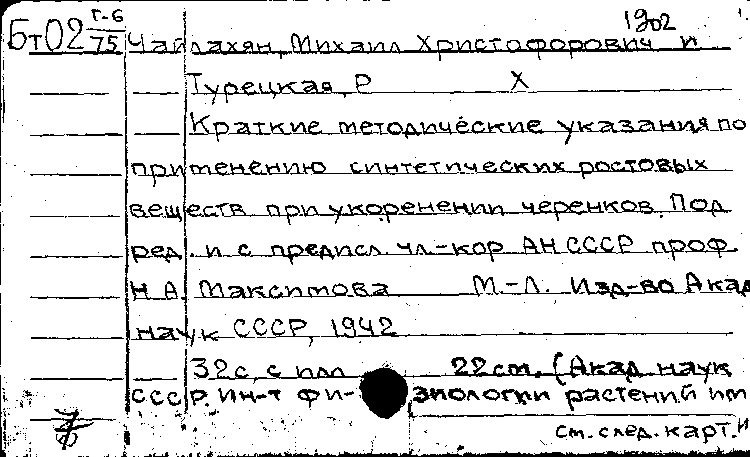 1902
Бт02 Г-6/75 Чайлахян, Михаил Христофорович и
Турецкая, Р Х
Краткие методические указания по
применению синтетических ростовых
веществ при укоренении черенков. Под
ред. и с предисл. чл.-кор АН СССР проф.
Н А. Максимова М.-Л. Изд-во Акад
наук СССР, 1942
32с, с илл 22 см. (Акад наук
СССР. Ин-т физиологии растений им
см. след. карт.